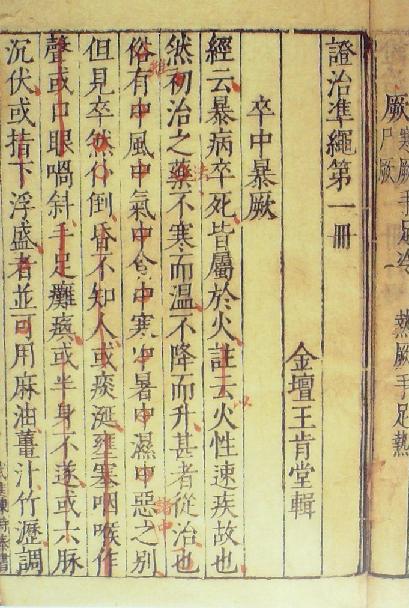 厥
寒厥手足冷 熱厥手足熱
尸厥
證治準繩第一冊
金壇王肯堂輯
卒中暴厥
經云暴病卒死皆屬於火註云火性速疾故也
然初治之藥不寒而溫不降而升甚者從治也
俗有中風中氣中食中寒中暑中濕中惡之別
但見卒然仆倒昏不知人或痰涎壅塞咽喉作
聲或口眼喎斜手足癱瘓或半身不遂或六脉
沉伏或指下浮盛者並可用麻油薑汁竹瀝調
以
法
雖
諸中